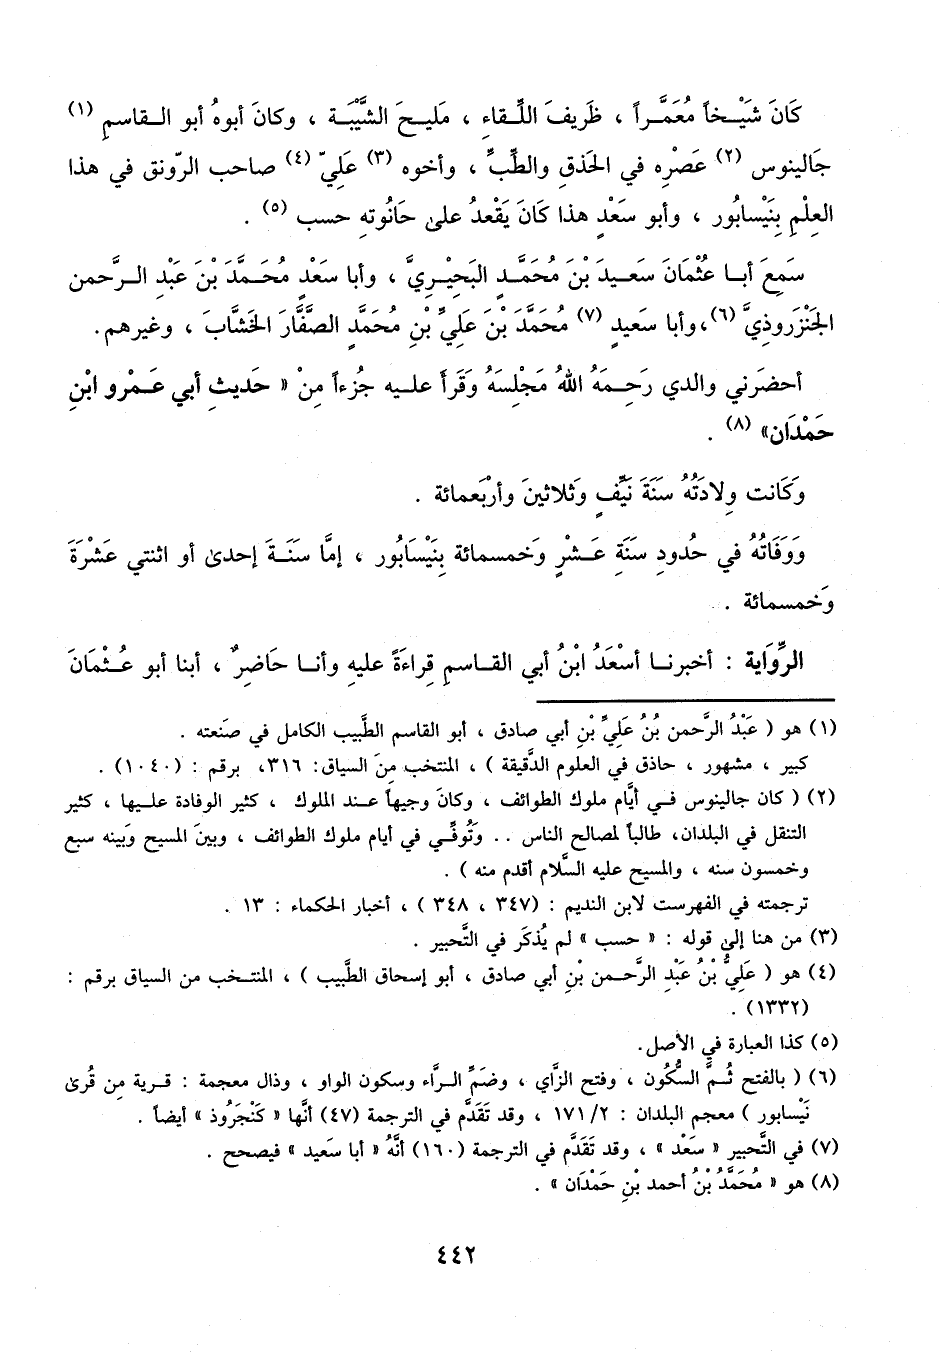 كَانَ شَيْخاً مُعَمَّراً ، ظَريفَ اللِّقاءِ ، مَليحَ الشَّيْبَة ، وكانَ أبوهُ أبو القاسمِ (١)
جَالينوس (٢) عَصْرِه في الحَذقِ والطِّبِّ ، وأخوه (٣) عَليّ (٤) صاحب الرّونق في هذا
العِلْمِ بِنَيْسابُور ، وأبو سَعْدٍ هذا كَانَ يَقْعدُ على حَانُوته حسب (٥) .
سَمِعَ أبا عُثْمَانَ سَعيدَ بْنَ مُحَمَّدٍ البَحِيْرِيَّ ، وأبا سَعْدٍ مُحَمَّدَ بْنَ عَبْدِ الرَّحمن
الجَنْزَروذِيَّ (٦)، وأبا سَعيدٍ (٧) مُحَمَّدَ بْنَ عَليِّ بْنِ مُحَمَّدٍ الصَّفَّارَ الخَشَّابَ ، وغيرهم.
أحضَرني والدي رَحِمَهُ اللهُ مَجْلِسَهُ وَقَرأَ عليه جُزءاً مِنْ « حَديثِ أبي عَمْرو ابْنِ
حَمْدَان» (٨) .
وَكَانت وِلادَتُهُ سَنَةَ نَيِّفٍ وَثَلاثينَ وأرْبَعمائة .
وَوَفَاتُهُ في حُدودِ سَنَةِ عَشْرٍ وَخمسمائة بِنَيْسَابُور ، إمَّا سَنَةَ إحدى أو اثنتي عَشْرَةَ
وَخمسمائة .
الرِّوَاية : أخبرنا أسْعَدُ ابْنُ أبي القاسمِ قِراءَةً عليهِ وأنا حَاضِرٌ ، أبنا أبو عُثْمَانَ
(١) هو ( عَبْدُ الرَّحمن بْنُ عَليِّ بْنِ أبي صادق ، أبو القاسم الطَّبيب الكامل في صَنعته .
كبير ، مشهور ، حاذق في العلوم الدَّقيقة ) ، المنتخب مِنَ السياق: ٣١٦، برقم : (١٠٤٠) .
(٢) ( كان جالينوس في أيَّام ملوك الطوائف ، وكانَ وجيهاً عند الملوك ، كثير الوفادة عليها ، كثير
التنقل في البلدان، طالباً لمصالح الناس .. وَتُوفِّي في أيام ملوك الطوائف ، وبينَ المسيح وَبينه سبع
وخمسون سنه ، والمسيح عليه السَّلام أقدم منه ) .
ترجمته في الفهرست لابن النديم : (٣٤٧ ، ٣٤٨ ) ، أخبار الحكماء : ١٣ .
(٣) من هنا إلىٰ قوله : « حسب » لم يُذكَر في التَّحبير .
(٤) هو ( عَليُّ بْنُ عَبْدِ الرَّحمن بْنِ أبي صادق ، أبو إسحاق الطَّبيب ) ، المنتخب من السياق برقم :
(١٣٣٢) .
(٥) كذا العبارة في الأصل.
(٦) ( بالفتح ثُمَّ السُّكُون ، وفتح الزَّاي ، وضَمِّ الرَّاء وسكون الواو ، وذال معجمة : قرية مِن قُرىٰ
نَيْسابور ) معجم البلدان : ١٧١/٢ ، وقد تَقَدَّم في الترجمة (٤٧) أنَّها « كَنْجَرُوذ » أيضاً .
(٧) في التَّحبير « سَعْد » ، وقد تَقَدَّم في الترجمة (١٦٠) أنَّهُ « أبا سَعيد » فيصحح .
(٨) هو « مُحَمَّدُ بْنُ أحمد بْنِ حَمْدَان » .
٤٤٢